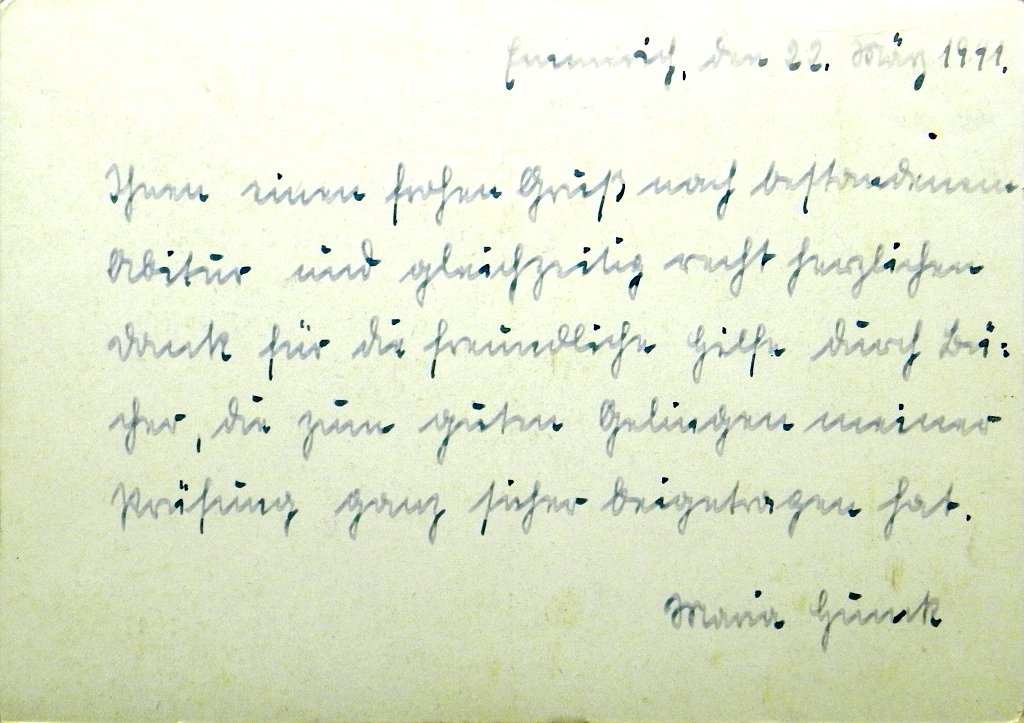 Emmerich, den 22. März 1941.
Ihnen einen frohen Gruß nach bestandenem
Abitur und gleichzeitig recht herzlichen
Dank für die freundliche Hilfe durch Bü:
cher, die zum guten Gelingen meiner
Prüfung ganz sicher beigetragen hat.
Maria Hunck